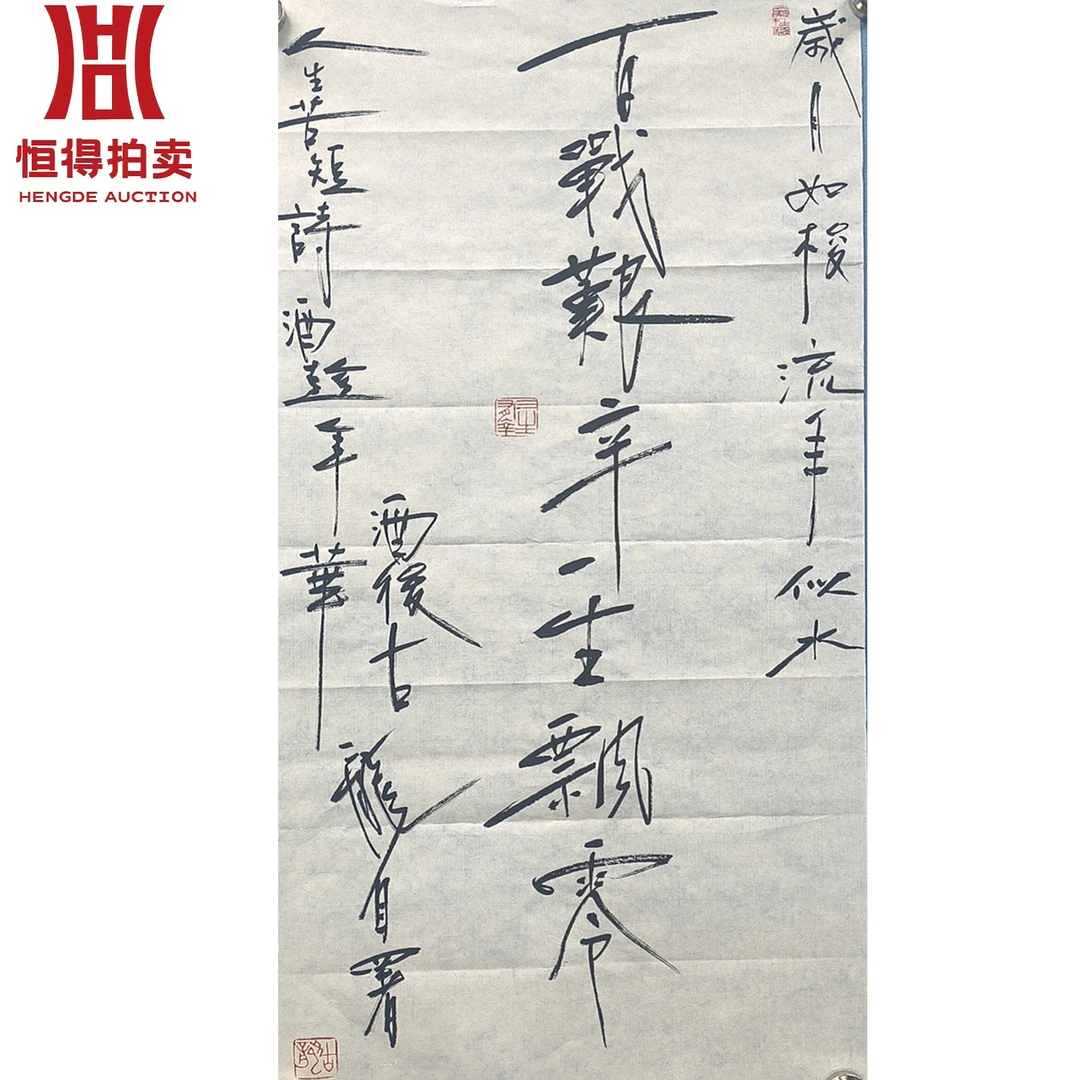 恒得拍卖
HENGDE AUCTION
歲月如梭流年似水
百戰艱辛一生飄零
人生苦短詩酒趁年華
酒後古龍自署
古龍